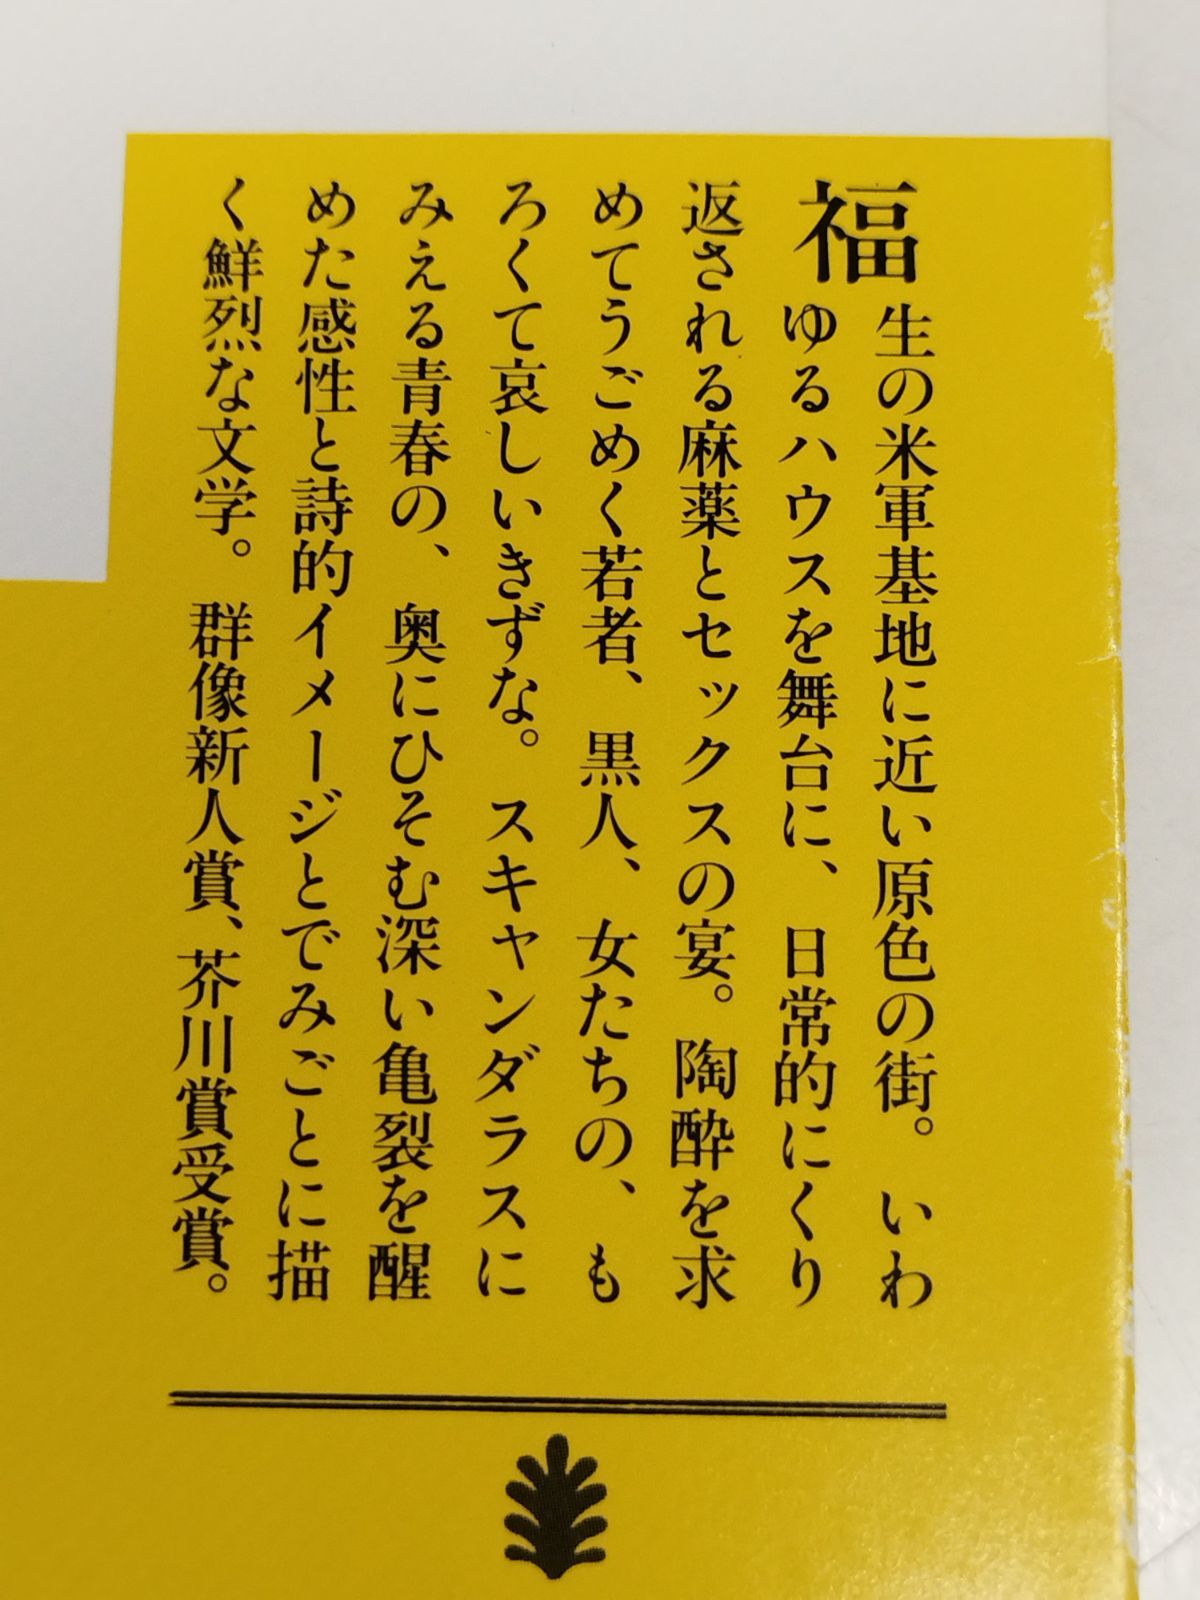 福生の米軍基地に近い原色の街。いわ
ゆるハウスを舞台に、日常的にくり
返される麻薬とセックスの宴。陶酔を求
めてうごめく若者、黒人、女たちの、も
ろくて哀しいきずな。スキャンダラスに
みえる青春の、奥にひそむ深い亀裂を醒
めた感性と詩的イメージとでみごとに描
く鮮烈な文学。群像新人賞、芥川賞受賞。